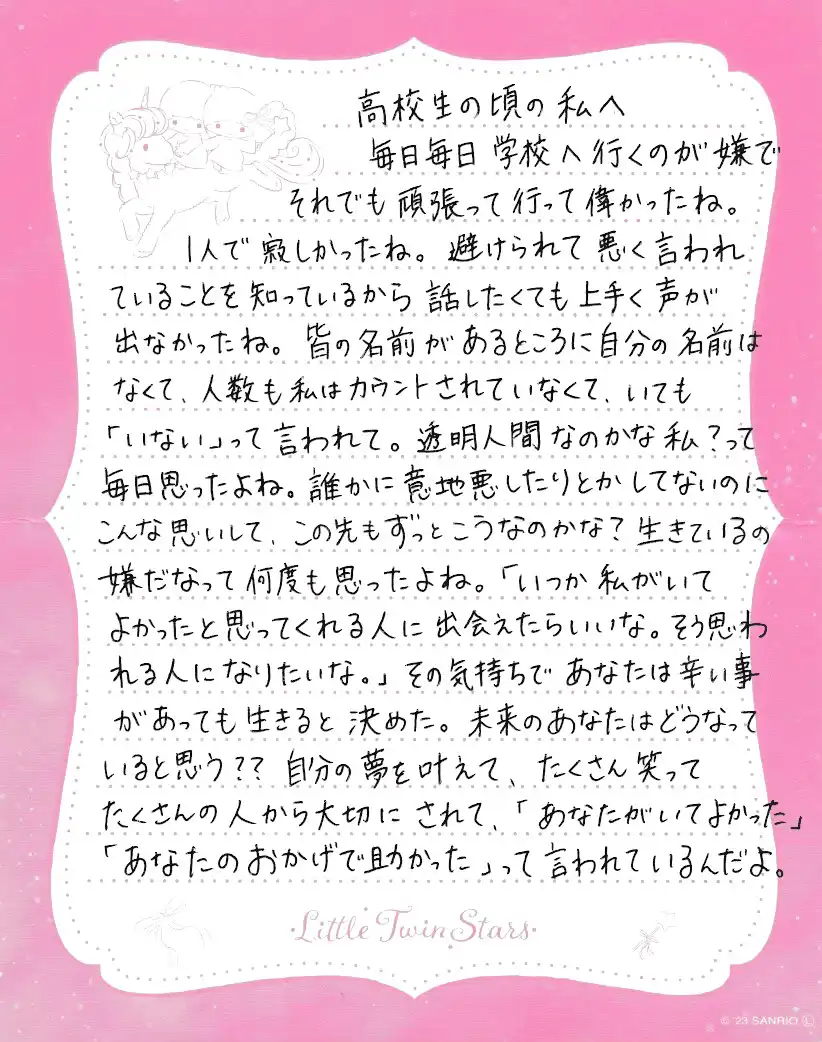 高校生の頃の私へ
毎日毎日学校へ行くのが嫌で
それでも頑張って行って偉かったね。
1人で寂しかったね。避けられて悪く言われ
ていることを知っているから話したくても上手く声が
出なかったね。皆の名前があるところに自分の名前は
なくて、人数も私はカウントされていなくて、いても
「いない」って言われて。透明人間なのかな私?って
毎日思ったよね。誰かに意地悪したりとかしてないのに
こんな思いして、この先もずっとこうなのかな?生きているの
嫌だなって何度も思ったよね。「いつか私がいて
よかったと思ってくれる人に出会えたらいいな。そう思わ
れる人になりたいな。」その気持ちであなたは辛い事
があっても生きると決めた。未来のあなたはどうなって
いると思う??自分の夢を叶えて、たくさん笑って
たくさんの人から大切にされて、「あなたがいてよかった」
「あなたのおかげで助かった」って言われているんだよ。
·Little Twin Stars·
© '23 SANRIO Ⓛ